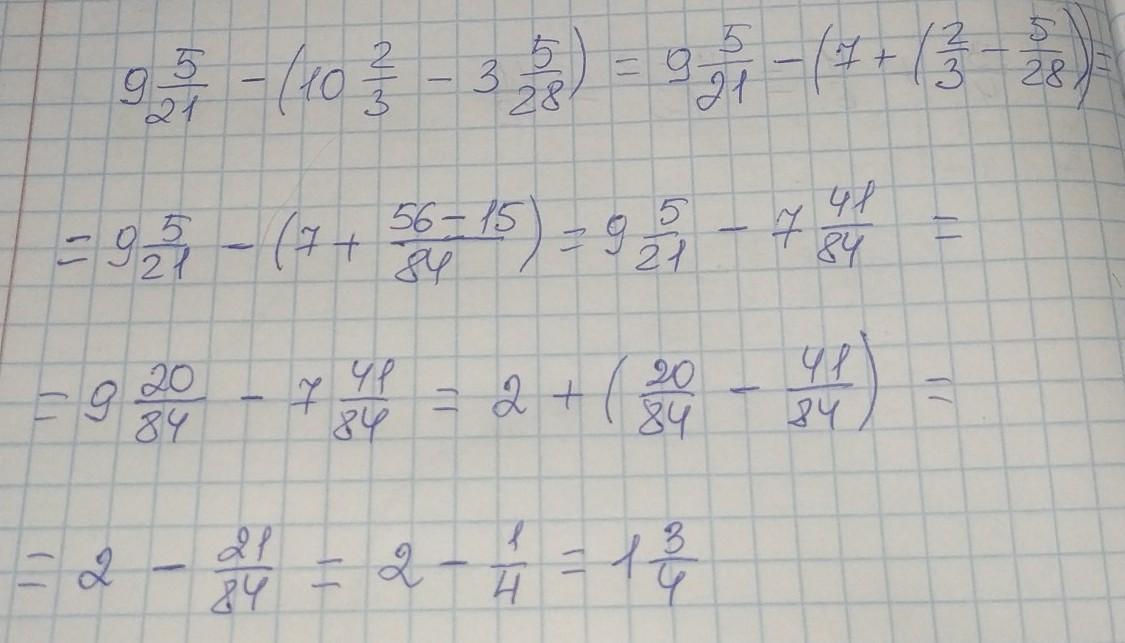 9 5/21 - (10 2/3 - 3 5/28) = 9 5/21 - (7 + (2/3 - 5/28)) =
= 9 5/21 - (7 + (56 - 15)/84) = 9 5/21 - 7 41/84 =
= 9 20/84 - 7 41/84 = 2 + (20/84 - 41/84) =
= 2 - 21/84 = 2 - 1/4 = 1 3/4